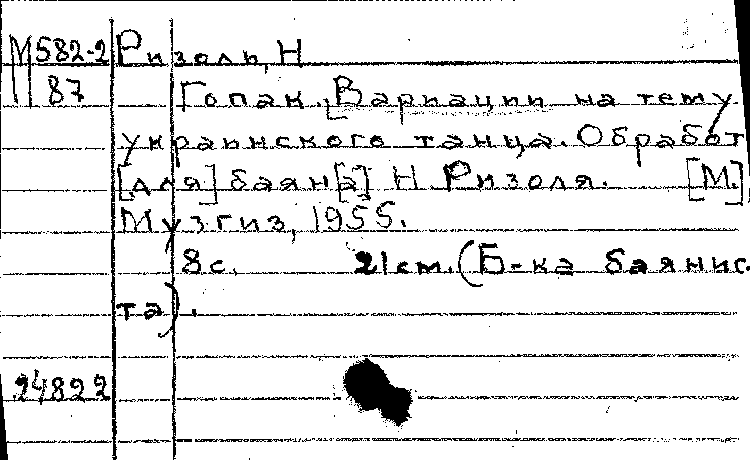 М582-2 Ризоль, Н
87 Гопак. Вариации на тему
украинского танца. Обработ
[для] баян[а] Н Ризоля. [М.]
Музгиз, 1955.
8 с. 21 см. (Б-ка баянис-
та).
24822